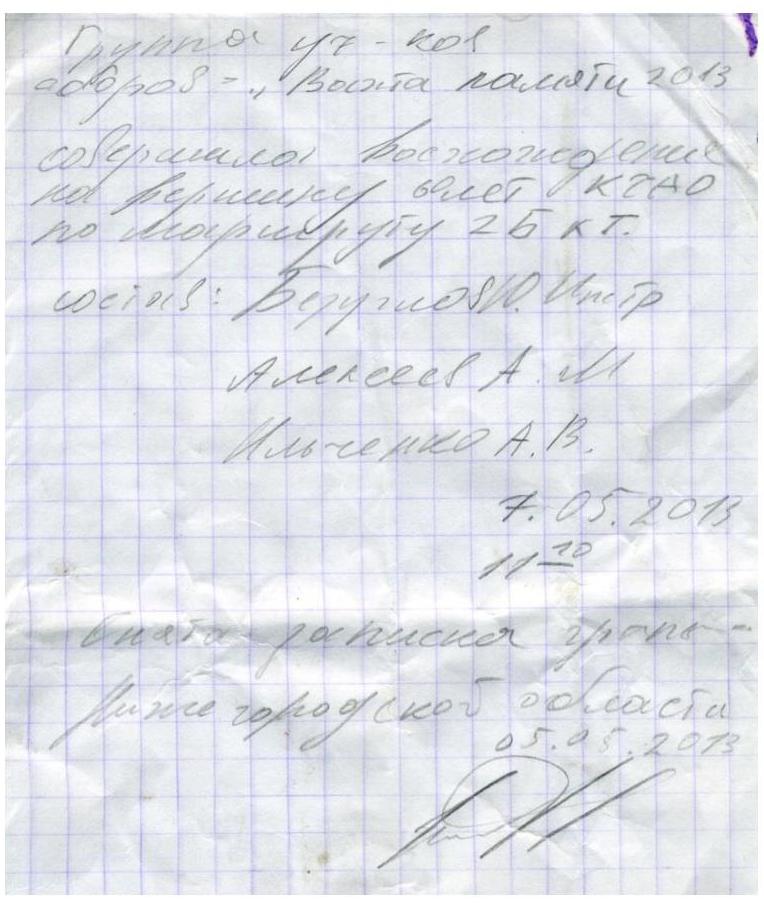 Группа уч-ков
сборов - „Вахта памяти 2013
совершила восхождение
на вершину КЧАО
по маршруту 2Б кт.
состав: Безуглов Ю.
Алексеев А. М
Ильченко А. В.
7. 05. 2013
11 20
Снята записка группы -
Нижегородской области
05.05.2013